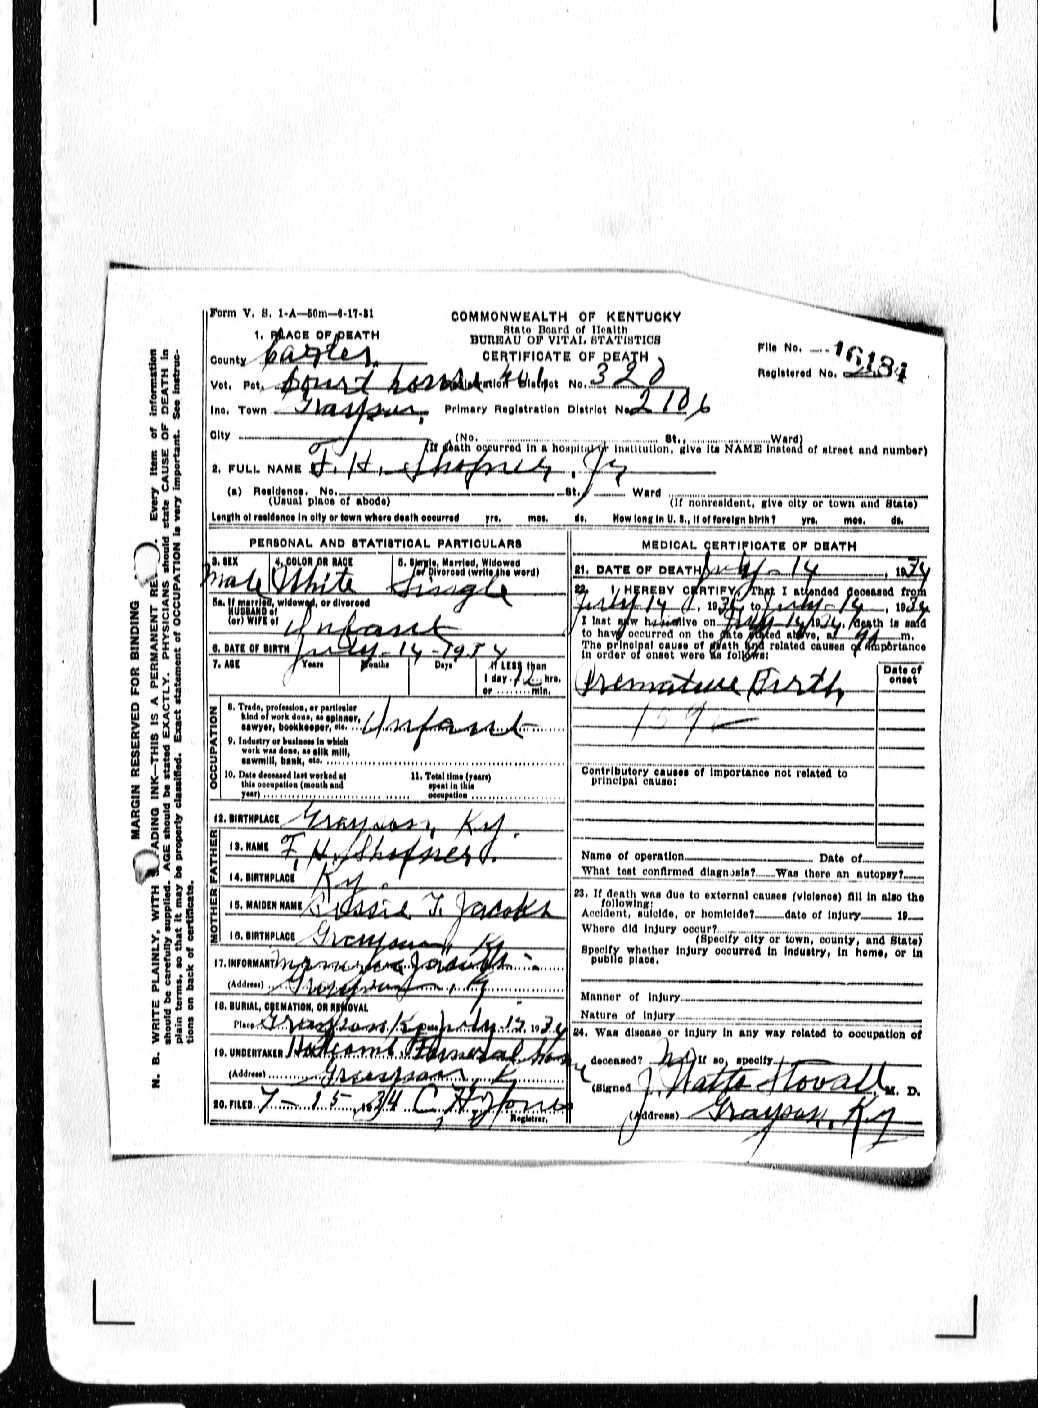 Form V. S. 1-A—50m—6-17-31
COMMONWEALTH OF KENTUCKY
State Board of Health
BUREAU OF VITAL STATISTICS
CERTIFICATE OF DEATH
File No. 16184
Registered No.
1. PLACE OF DEATH
County Carter
Vot. Pct. Court house #1 Registration District No. 320
Inc. Town Grayson, Primary Registration District No. 2106
City (No. St., Ward)
(If death occurred in a hospital or institution, give its NAME instead of street and number)
2. FULL NAME F. H. Shofner, Jr
(a) Residence. No. St., Ward
(Usual place of abode) (If nonresident, give city or town and State)
Length of residence in city or town where death occurred yrs. mos. ds. How long in U. S., if of foreign birth? yrs. mos. ds.
PERSONAL AND STATISTICAL PARTICULARS
3. SEX 4. COLOR OR RACE 5. Single, Married, Widowed
or Divorced (write the word)
Male White Single
5a. If married, widowed, or divorced
HUSBAND of
(or) WIFE of Infant
6. DATE OF BIRTH July-14-1934
7. AGE Years Months Days If LESS than
1 day 12 hrs.
or min.
OCCUPATION
8. Trade, profession, or particular
kind of work done, as spinner,
sawyer, bookkeeper, etc. Infant
9. Industry or business in which
work was done, as silk mill,
sawmill, bank, etc.
10. Date deceased last worked at
this occupation (month and
year)
11. Total time (years)
spent in this
occupation
12. BIRTHPLACE Grayson, Ky.
FATHER
13. NAME F. H. Shofner
14. BIRTHPLACE Ky.
MOTHER
15. MAIDEN NAME Jacobs
16. BIRTHPLACE Grayson, Ky
17. INFORMANT Jacobs
(Address) Grayson, Ky
18. BURIAL, CREMATION, OR REMOVAL
Place Grayson Ky Date July 15 1934
19. UNDERTAKER Funeral home
(Address) Grayson Ky
20. FILED 7-15 1934 C. H. Jones
Registrar.
MEDICAL CERTIFICATE OF DEATH
21. DATE OF DEATH July-14, 1934
22. I HEREBY CERTIFY, That I attended deceased from
July 14, 1934 to July-14, 1934
I last saw him alive on July 14 1934, death is said
to have occurred on the date stated above, at m.
The principal cause of death and related causes of importance
in order of onset were as follows:
Date of
onset
Premature Birth
159
Contributory causes of importance not related to
principal cause:
Name of operation Date of
What test confirmed diagnosis? Was there an autopsy?
23. If death was due to external causes (violence) fill in also the
following:
Accident, suicide, or homicide? date of injury 19
Where did injury occur?
(Specify city or town, county, and State)
Specify whether injury occurred in industry, in home, or in
public place.
Manner of injury
Nature of injury
24. Was disease or injury in any way related to occupation of
deceased? No If so, specify
(Signed J. Watts Stovall, M. D.
(Address) Grayson, Ky
MARGIN RESERVED FOR BINDING
N. B. WRITE PLAINLY, WITH ADING INK—THIS IS A PERMANENT RE . Every item of information
should be carefully supplied. AGE should be stated EXACTLY. PHYSICIANS should state CAUSE OF DEATH in
plain terms, so that it may be properly classified. Exact statement of OCCUPATION is very important. See instruc-
tions on back of certificate.